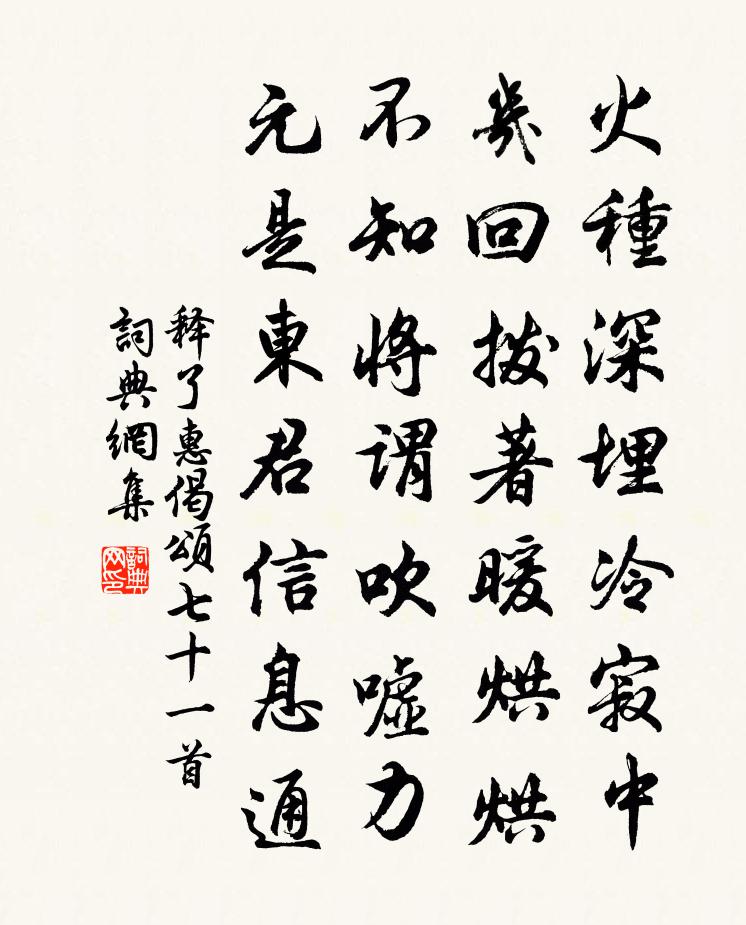 火種深埋冷寂中
幾回拨著暖烘烘
不知将謂吹嘘力
元是東君信息通
释了惠偈頌七十一首
詞典網集
詞典網印